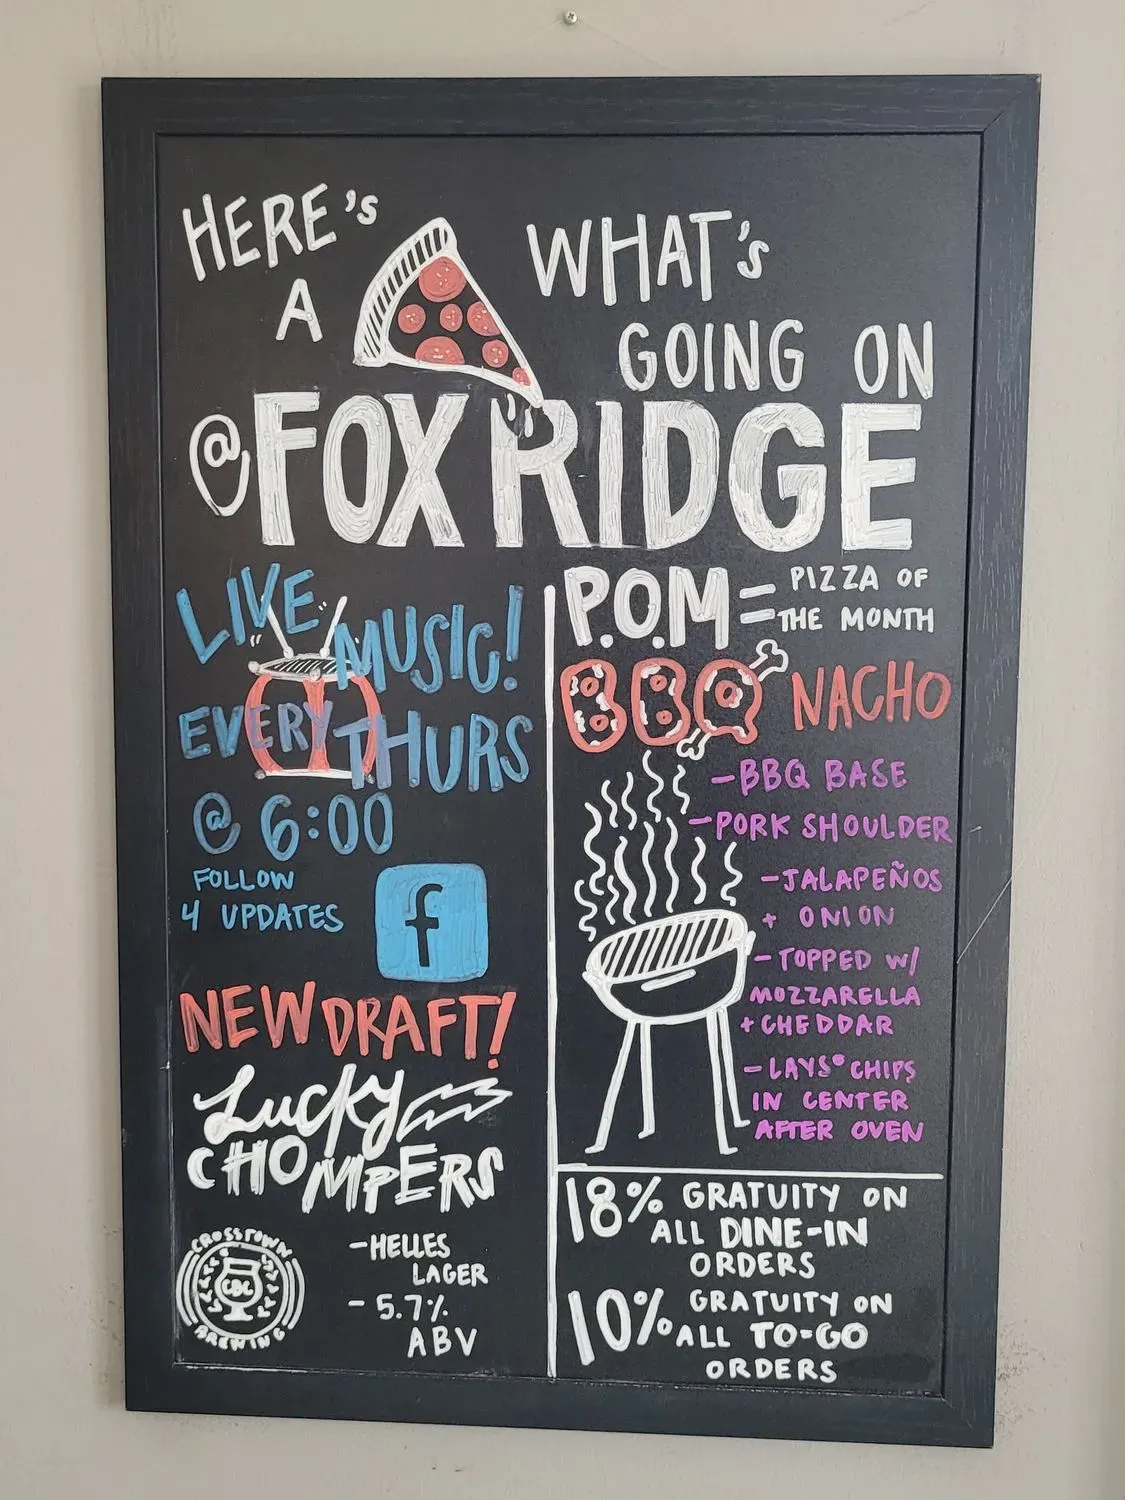 HERE'S
A
WHAT'S
GOING ON
@ FOX RIDGE
LIVE
MUSIC!
EVERY THURS
@ 6:00
FOLLOW
4 UPDATES
f
NEW DRAFT!
Lucky
CHOMPERS
CROSSTOWN
CBC
BREWING
-HELLES
LAGER
- 5.7%
ABV
P.O.M = PIZZA OF
THE MONTH
BBQ NACHO
-BBQ BASE
-PORK SHOULDER
-JALAPEÑOS
+ ONION
-TOPPED W/
MOZZARELLA
+CHEDDAR
-LAYS® CHIPS
IN CENTER
AFTER OVEN
18% GRATUITY ON
ALL DINE-IN
ORDERS
10% GRATUITY ON
ALL TO-GO
ORDERS